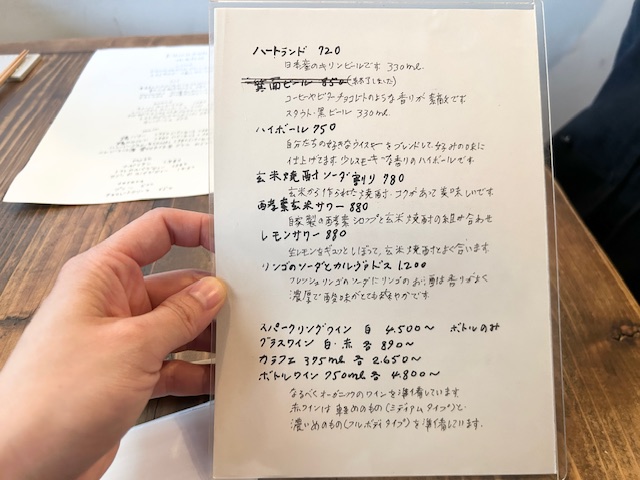 ハートランド 720
日本産のキリンビールです 330ml.
箕面ビール 850 (終了しました)
コーヒーやビターチョコレートのような香りが素敵です
スタウト・黒ビール 330ml.
ハイボール 750
自分たちの好きなウイスキーをブレンドして、好みの味に
仕上げてます。少しスモーキーな香りのハイボールです。
玄米焼酎ソーダ割り 780
玄米から作られた焼酎。コクがあって美味しいです
酵素玄米サワー 880
自家製の酵素シロップと玄米焼酎の組み合わせ
レモンサワー 880
生レモンをギュッとしぼって、玄米焼酎とよく合います
リンゴのソーダとカルヴァドス 1.200
フレッシュリンゴのソーダにリンゴのお酒は香りがよく
濃厚で酸味がとても爽やかです。
スパークリングワイン 白 4.500〜 ボトルのみ
グラスワイン 白・赤 各 890〜
カラフェ 375ml 各 2.650〜
ボトルワイン 750ml 各 4.800〜
なるべくオーガニックのワインを準備しています
赤ワインは 軽めのもの(ミディアムタイプ)と
濃いめのもの(フルボディタイプ)を準備しています。